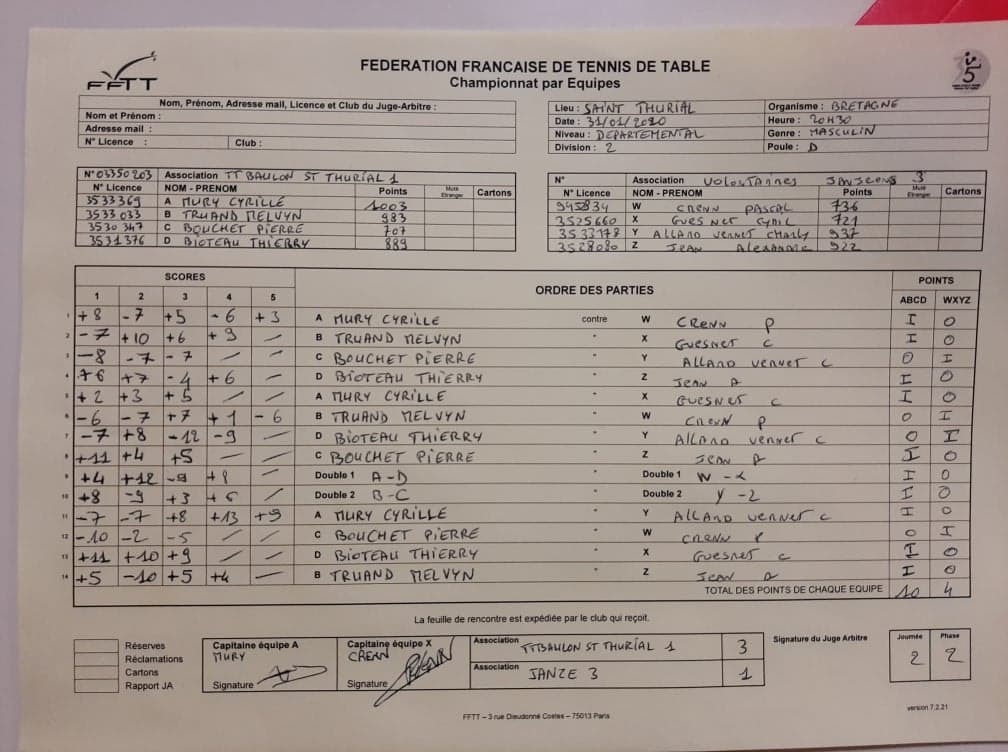 FFTT
FEDERATION FRANCAISE DE TENNIS DE TABLE
Championnat par Equipes
Nom, Prénom, Adresse mail, Licence et Club du Juge-Arbitre :
Nom et Prénom :
Adresse mail :
N° Licence : Club :
Lieu : SAINT THURIAL Organisme : BRETAGNE
Date : 31/01/2020 Heure : 20H30
Niveau : DEPARTEMENTAL Genre : MASCULIN
Division : 2 Poule : D
N° 03350203 Association TT BAULON ST THURIAL 1
N° Licence NOM - PRENOM Points Muté Etranger Cartons
3533369 A MURY CYRILLE 1003
3533033 B TRUAND MELVYN 983
3530347 C BOUCHET PIERRE 707
3531376 D BIOTEAU THIERRY 889
N° Association 3
N° Licence NOM - PRENOM Points Muté Etranger Cartons
945834 W CRENN PASCAL 736
3525660 X GUESNET CYRIL 721
3533178 Y ALLARD VERNET CHARLY 937
3528080 Z JEAN Alexandre 922
SCORES ORDRE DES PARTIES POINTS
1 2 3 4 5 ABCD WXYZ
1 +8 -7 +5 -6 +3 A MURY CYRILLE contre W CRENN P I 0
2 -7 +10 +6 +9 B TRUAND MELVYN " X GUESNET C I 0
3 -8 -7 -7 / / C BOUCHET PIERRE " Y ALLARD VERNET C 0 I
4 +6 +7 -4 +6 / D BIOTEAU THIERRY " Z JEAN A I 0
5 +2 +3 +5 / / A MURY CYRILLE " X GUESNET C I 0
6 -6 -7 +7 +1 -6 B TRUAND MELVYN " W CRENN P 0 I
7 -7 +8 -12 -9 / D BIOTEAU THIERRY " Y ALLARD VERNET C 0 I
8 +11 +4 +5 / / C BOUCHET PIERRE " Z JEAN A I 0
9 +4 +12 -9 +8 / Double 1 A-D " Double 1 W-X I 0
10 +8 -9 +3 +6 / Double 2 B-C " Double 2 Y-Z I 0
11 -7 -7 +8 +13 +9 A MURY CYRILLE " Y ALLARD VERNET C I 0
12 -10 -2 -5 / / C BOUCHET PIERRE " W CRENN P 0 I
13 +11 +10 +9 / / D BIOTEAU THIERRY " X GUESNET C I 0
14 +5 -10 +5 +4 / B TRUAND MELVYN " Z JEAN A I 0
TOTAL DES POINTS DE CHAQUE EQUIPE 10 4
La feuille de rencontre est expédiée par le club qui reçoit.
Réserves
Réclamations
Cartons
Rapport JA
Capitaine équipe A
MURY
Signature
Capitaine équipe X
CRENN
Signature
Association TTBAULON ST THURIAL 1 3
Association JANZE 3 1
Signature du Juge Arbitre
Journée Phase
2 2
version 7.2.21
FFTT – 3 rue Dieudonné Costes – 75013 Paris